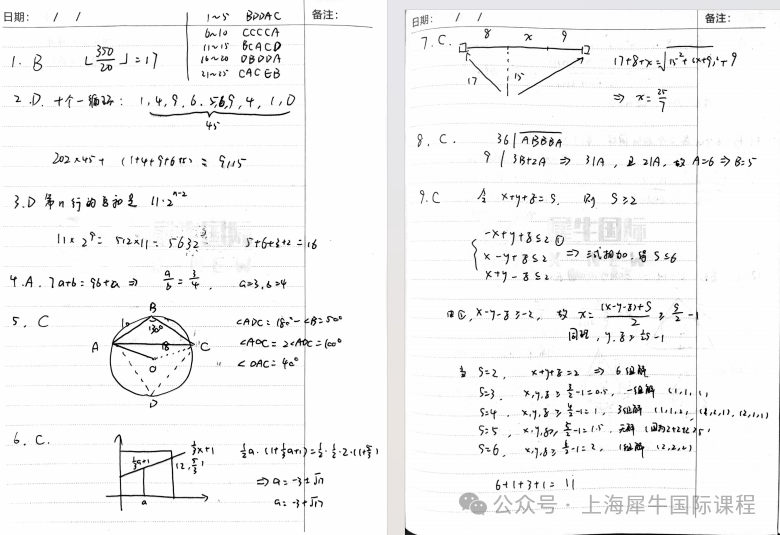 日期: / /
备注:
1~5 BDDAC
6~10 CCCCA
11~15 BCACD
16~20 DBDDA
21~25 CACEB
1. B ⌊350/20⌋ = 17
2. D. 十个一循环: 1, 4, 9, 6, 5, 6, 9, 4, 1, 0
45
202×45 + (1+4+9+6+5) = 9115
3. D 第n行的总和是 11·2^(n-2)
11×2^9 = 512×11 = 5632
5+6+3+2 = 16
4. A. 7a+b = 9b+a ⇒ a/b = 3/4, a=3, b=4
5. C
B
10
130°
A
18
C
O
D
∠ADC = 180° - ∠B = 50°
∠AOC = 2∠ADC = 100°
∠OAC = 40°
6. C.
1/3x+1
1/3a+1
(2, 5/3)
a
1/2a·(1+1/3a+1) = 1/2·1/2·2·(1+5/3)
⇒ a = -3±√17
a = -3+√17
日期: / /
备注:
7. C.
8 x 9
17
15
17+8+x = √(15²+(x+9)²) + 9
⇒ x = 25/7
8. C. 36 | ABBBA
9 | 3B+2A ⇒ 3|A, 且 2|A, 故 A=6 ⇒ B=5
9. C 令 x+y+z = S, 则 S≥2
-x+y+z≤2 ①
x-y+z≤2
x+y-z≤2
⇒ 三式相加, 得 S≤6
由①, x-y-z≥-2, 故 x = ((x-y-z)+S)/2 ≥ S/2 - 1
同理, y, z ≥ S/2 - 1
当 S=2, x+y+z=2 ⇒ 6组解
S=3, x,y,z ≥ 3/2-1=0.5, 一组解 (1,1,1)
S=4, x,y,z ≥ 4/2-1=1, 3组解 (1,1,2) (1,2,1) (2,1,1)
S=5, x,y,z≥ 5/2-1=1.5, 无解 (因为2+2+2>5)
S=6, x,y,z ≥ 6/2-1=2, 1组解 (2,2,2)
6+1+3+1 = 11
公众号 · 上海犀牛国际课程